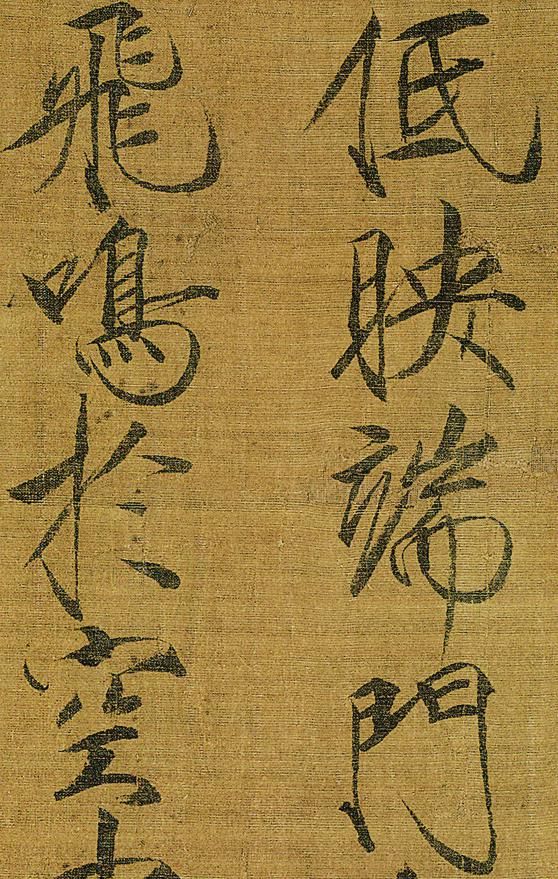 低映端門
飛鳴於空